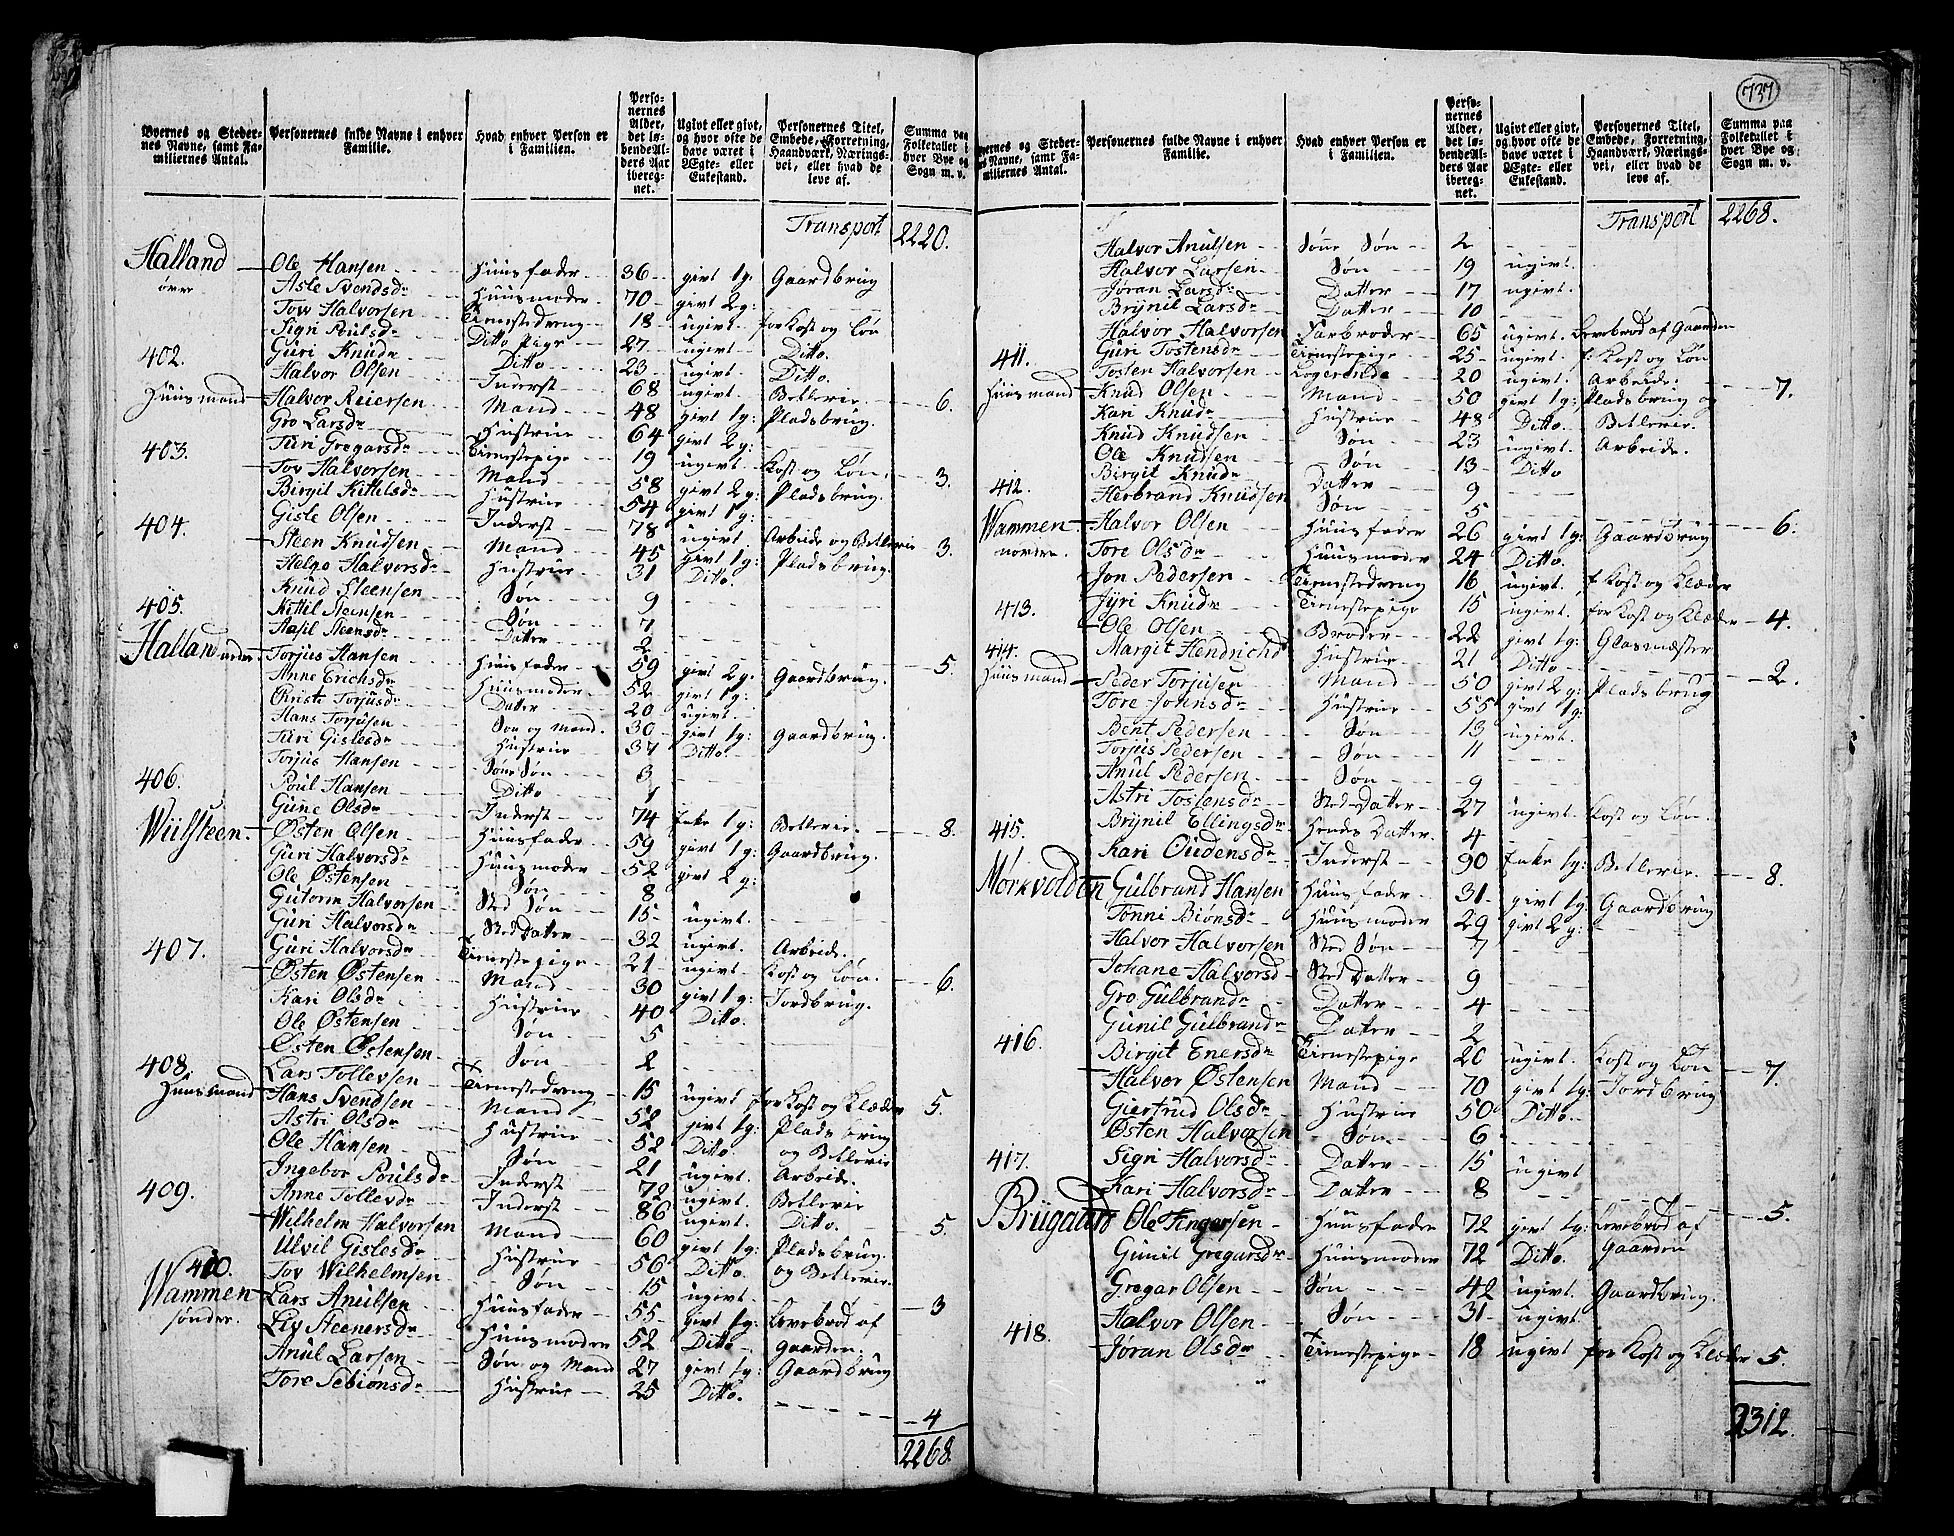 737
Byernes og Steder-nes Navne, samt Fa-miliernes Antal. Personernes fulde Navne i enhver Familie. Hvad enhver Person er i Familien. Perso-nernes Alder, det lø-bende Al-ders Aar iberegnet. Ugivt eller givt, og hvor ofte de have været i Ægte- eller Enkestand. Personernes Titel, Embede, Forretning, Haandværk, Nærings-vei, eller hvad de leve af. Summa paa Folketallet i hver Bye og Sogn m. v.
Transport 2220.
Halland øver
Ole Hansen Huusfader 36 givt 1g: Gaardbrug
Asle Svendsdr Huusmoder 70 givt 2g:
Tov Halvorsen Tienestedreng 18 ugivt for Kost og Løn
Sigri Poulsdr Ditto Pige 27 ugivt Ditto.
Guri Knudr Ditto 23 ugivt Ditto.
402. Halvor Olsen Inderst 68 ugivt. Betlerie. 6.
Huusmand Halvor Reiersen Mand 48 givt 1g: Pladsbrug.
Gro Larsdr Hustrue 64 givt 2g:
Turi Gregarsdr Tienestepige 19 ugivt Kost og Løn. 3.
403. Tov Halvorsen Mand 58 givt 2g: Pladsbrug.
Birgit Kittelsdr Hustrue 54 givt 1g:
Gisle Olsen Inderst 78 ugivt. Arbeide og Betlerie 3.
404. Steen Knudsen Mand 45 givt 1g: Pladsbrug.
Helge Halvorsdr Hustrue 31 Ditto.
Knud Steensen Søn 9
Kittil Steensen Søn 7
Aasil Steensdr Datter 2
405. 5.
Halland neder Torjus Hansen Huusfader 59 givt 2g: Gaardbrug.
Anne Erichsdr Huusmoder 52 givt 1g:
Christi Torjusdr Datter 20 ugivt
Hans Torjusen Søn og Mand. 30 givt 1g: Gaardbrug.
Turi Gislesdr Hustrue 37 Ditto.
Torjus Hansen Sønne Søn 3
Poul Hansen Ditto 1
Gune Olsdr Inderst 74 Enke 1g: Betlerie. 8.
406.
Wulsteen Østen Olsen Huusfader 59 givt 1g: Gaardbrug.
Guri Halvorsdr Huusmoder 52 givt 2g:
Ole Østensen Søn 8
Gutorm Halvorsen Sted Søn 15 ugivt.
Guri Halvorsdr Sted Datter 32 ugivt. Arbeide.
Guri Halvorsdr Tienestepige 21 ugivt. Kost og Løn. 6.
407. Østen Østensen Mand 30 givt 1g: Jordbrug.
Kari Olsdr Hustrue 40 Ditto.
Ole Østensen Søn 5
Østen Østensen Søn 2
Lars Tollevsen Tienestedreng 15 ugivt for Kost og Klæder 5.
408.
Huusmand Hans Svendsen Mand 52 givt 1g: Plads brug
Astri Olsdr Hustrue 52 Ditto. og Betlerie
Ole Hansen Søn 21 ugivt. Arbeide.
Ingebor Poulsdr Inderst 72 ugivt. Betlerie
Anne Tollevdr Inderst 86 ugivt. Ditto. 5.
409. Wilhelm Halvorsen Mand 60 givt 1g: Pladsbrug.
Ulvil Gislesdr Hustrue 56 Ditto. og Betlerie.
Tov Wilhelmsen Søn 15 ugivt. 3
410.
Wammen sønder. Lars Anulsen Huusfader 55 givt 1g: Levebrød af
Liv Steenersdr Huusmoder 52 Ditto. Gaarden.
Anul Larsen Søn og Mand 27 givt 1g: Gaardbrug
Tore Sebionsdr Hustrue 25 Ditto.
4
2268.
Byernes og Steder-nes Navne, samt Fa-miliernes Antal. Personernes fulde Navne i enhver Familie. Hvad enhver Person er i Familien. Perso-nernes Alder, det lø-bende Al-ders Aar iberegnet. Ugivt eller givt, og hvor ofte de have været i Ægte- eller Enkestand. Personernes Titel, Embede, Forretning, Haandværk, Nærings-vei, eller hvad de leve af. Summa paa Folketallet i hver Bye og Sogn m. v.
Transport 2268.
Halvor Anulsen Sønne Søn 2
Halvor Larsen Søn 19 ugivt.
Jøran Larsdr Datter 17 ugivt.
Brynil Larsdr Datter 10
Halvor Halvorsen Farbroder 65 ugivt. Levebrød af Gaarden
Guri Tostensdr Tienestepige 25 ugivt. f. Kost og Løn
Tosten Halvorsen Logerende 20 ugivt. Arbeide. 7.
411.
Huusmand Knud Olsen Mand 50 givt 1g: Pladsbrug og
Kari Knudr Hustrue 48 Ditto. Betlerie.
Knud Knudsen Søn 23 ugivt. Arbeide.
Ole Knudsen Søn 13 Ditto
Birgit Knudr Datter 9
Herbrand Knudsen Søn 5 6.
412.
Wammen norere. Halvor Olsen Huusfader 26 givt 1g: Gaardbrug
Tore Olsdr Huusmoder 24 Ditto.
Jon Pedersen Tienestedreng 16 ugivt. f. Kost og Klæder
Jyri Knudr Tienestepige 15 ugivt. for Kost og Klæder 4.
413. Ole Olsen Broder 22 givt 1g: Glasmæster
Margit Hendrichsd Hustrue 21 Ditto 2.
414.
Huusmand Peder Torjusen Mand 50 givt 2g: Pladsbrug
Tore Johnsdr Hustrue 55 givt 1g:
Bent Pedersen Søn 13 ugivt.
Torjus Pedersen Søn 11
Anul Pedersen Søn 9
Astri Tostensdr Sted Datter 27 ugivt. Kost og Løn.
Brynil Ellingsdr Hendes Datter. 4
Kari Oudensdr Inderst 90 Enke 1g: Betlerie. 8.
415.
Mørkvolden Gulbrand Hansen Huusfader 31 givt 1g: Gaardbrug
Tonni Bionsdr Huusmoder 29 givt 2g:
Halvor Halvorsen Sted Søn 7
Johane Halvorsd Sted Datter 9
Gro Gulbrandr Datter 4
Gunil Gulbrandr Datter 2
Birgit Enersdr Tienestepige 20 ugivt. Kost og Løn 7.
416. Halvor Østensen Mand 70 givt 1g: Jordbrug
Giertrud Olsdr Hustrue 50 Ditto.
Østen Halvorsen Søn 6
Sigri Halvorsdr Datter 15 ugivt
Kari Halvorsdr Datter 8 5.
417.
Brugaard Ole Fingarsen Huusfader 72 givt 1g: Levebrød af
Gunil Gregarsdr Huusmoder 72 Ditto. Gaarden
Gregar Olsen Søn 42 ugivt. Gaardbrug.
Halvor Olsen Søn 31 ugivt.
Jøran Olsdr Tienestepige 18 ugivt for Kost og Klæder 5.
418.
2312.